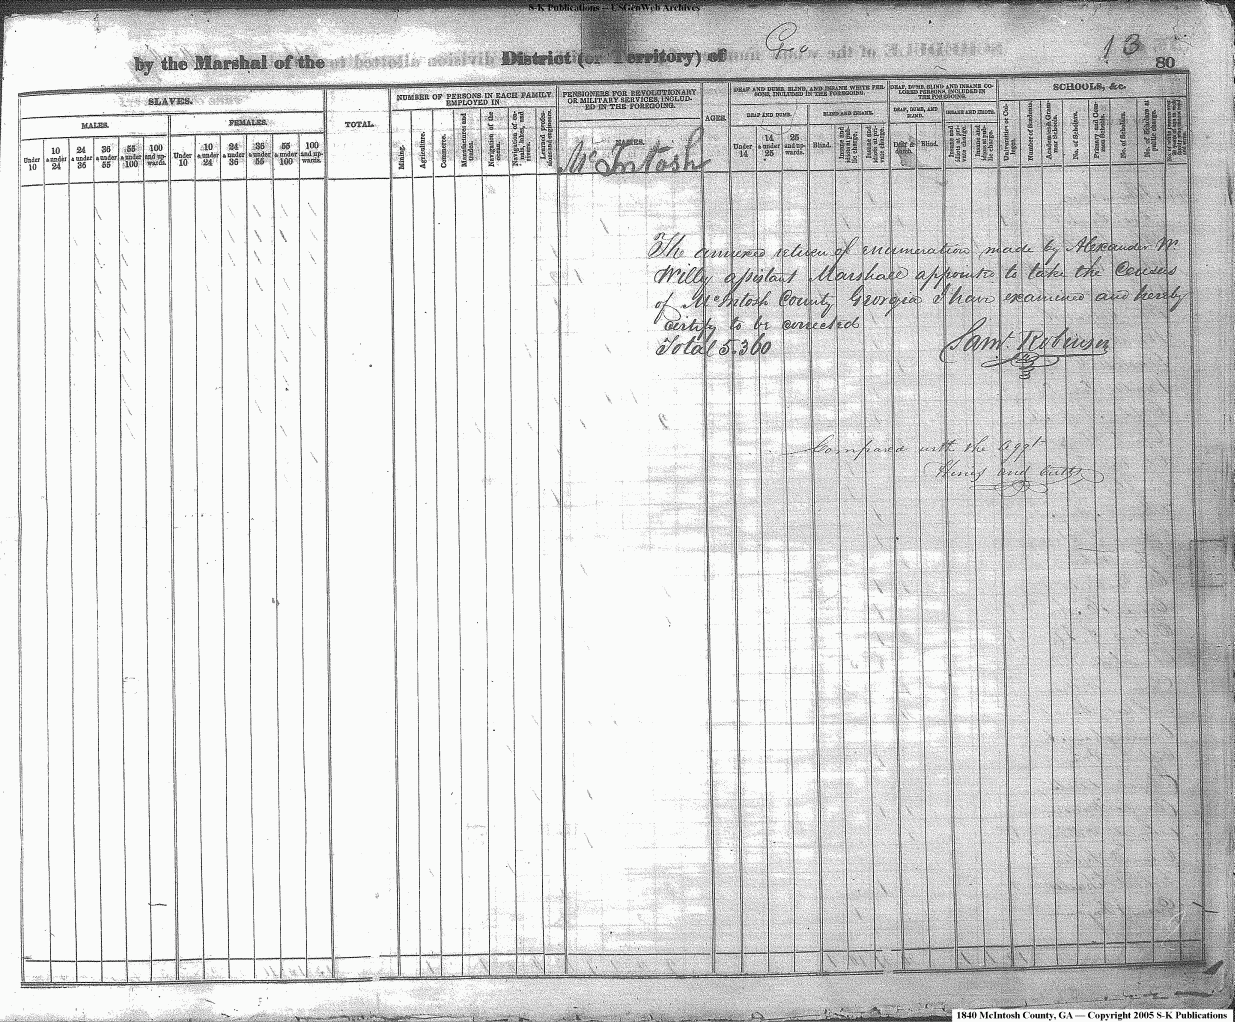 S-K Publications -- USGenWeb Archives
by the Marshal of the District (or Territory) of Geo
13
80
SLAVES.
MALES.
FEMALES.
Under 10
10 & under 24
24 & under 36
36 & under 55
55 & under 100
100 and upwards.
Under 10
10 & under 24
24 & under 36
36 & under 55
55 & under 100
100 and upwards.
TOTAL.
NUMBER OF PERSONS IN EACH FAMILY
EMPLOYED IN
Mining.
Agriculture.
Commerce.
Manufactures and trades.
Navigation of the ocean.
Navigation of canals, lakes, and rivers.
Learned professions and engineers.
PENSIONERS FOR REVOLUTIONARY
OR MILITARY SERVICES, INCLUD-
ED IN THE FOREGOING.
NAMES.
McIntosh
AGES.
DEAF AND DUMB, BLIND, AND INSANE WHITE PER-
SONS, INCLUDED IN THE FOREGOING.
DEAF AND DUMB.
Under 14
14 & under 25
25 and upwards.
BLIND AND INSANE.
Blind.
Insane and idiots at public charge.
Insane and idiots at private charge.
DEAF, DUMB, BLIND AND INSANE CO-
LORED PERSONS, INCLUDED IN
THE FOREGOING.
DEAF, DUMB, AND
BLIND.
Deaf & dumb.
Blind.
INSANE AND IDIOTS.
Insane and idiots at private charge.
Insane and idiots at public charge.
SCHOOLS, &c.
Universities or College.
Number of Students.
Academies & Grammar Schools.
No. of Scholars.
Primary and Common Schools.
No. of Scholars.
No. of Scholars at public charge.
The annexed return of enumeration made by Alexander W
Willy assistant Marshall appointed to take the Census
of McIntosh County Georgia I have examined and hereby
certify to be corrected
Total 5.360
Saml Robinson
Compared with the aggt
Henry and Cutts
1840 McIntosh County, GA — Copyright 2005 S-K Publications